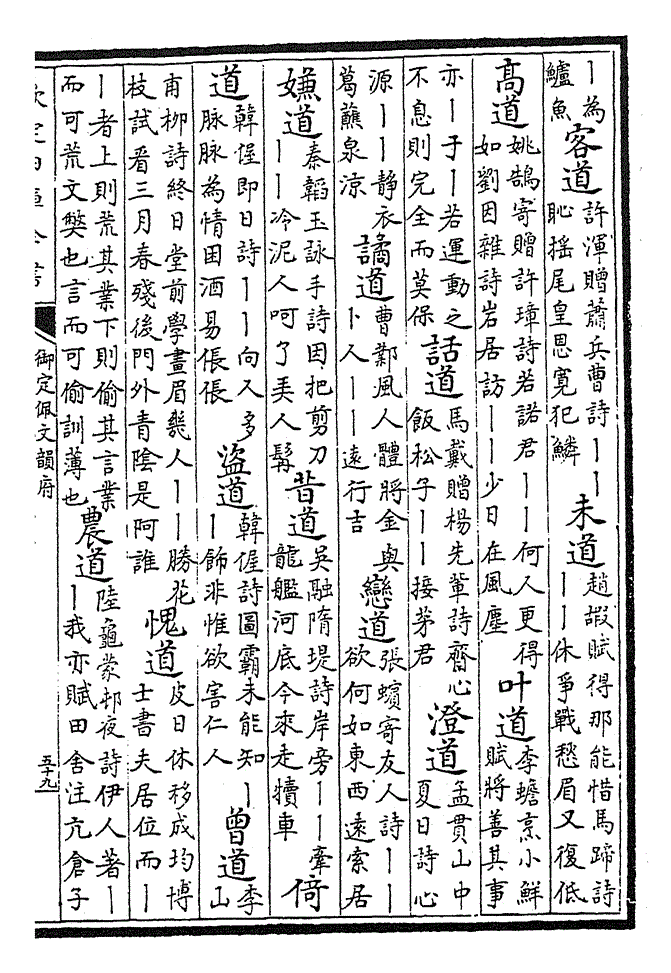 丨為
鱸魚
客道
許渾贈蕭兵曹詩丨丨
恥搖尾皇恩寬犯鱗
未道
趙嘏賦得那能惜馬蹄詩
丨丨休爭戰愁眉又復低
高道
姚鵠寄贈許璋詩若諾君丨丨何人更得
如劉因雜詩岩居訪丨丨少日在風塵
叶道
李蟾烹小鮮
賦將善其事
亦丨于丨若運動之
不息則完全而莫保
話道
馬戴贈楊先輩詩齋心
飯松子丨丨接茅君
澄道
孟貫山中
夏日詩心
源丨丨靜衣
葛蘸泉涼
譎道
曹鄴風人體將金與
卜人丨丨遠行吉
戀道
張蠙寄友人詩丨丨
欲何如東西遠索居
嫌道
秦韜玉詠手詩因把剪刀
丨丨冷泥人呵了美人髯
昔道
吳融隋堤詩岸旁丨丨牽
龍艦河底今來走犢車
倚
道
韓偓即日詩丨丨向人多
脉脉為情困酒易倀倀
盜道
韓偓詩圖霸未能知丨
丨飾非惟欲害仁人
曾道
李
山
甫柳詩終日堂前學畫眉幾人丨丨勝花
枝試看三月春殘後門外青陰是阿誰
愧道
皮日休移成均博
士書夫居位而丨
丨者上則荒其業下則偷其言業
而可荒文弊也言而可偷訓薄也
農道
陸龜蒙邨夜詩伊人著丨
丨我亦賦田舍注亢倉子
欽定四庫全書
御定佩文韻府
五十九